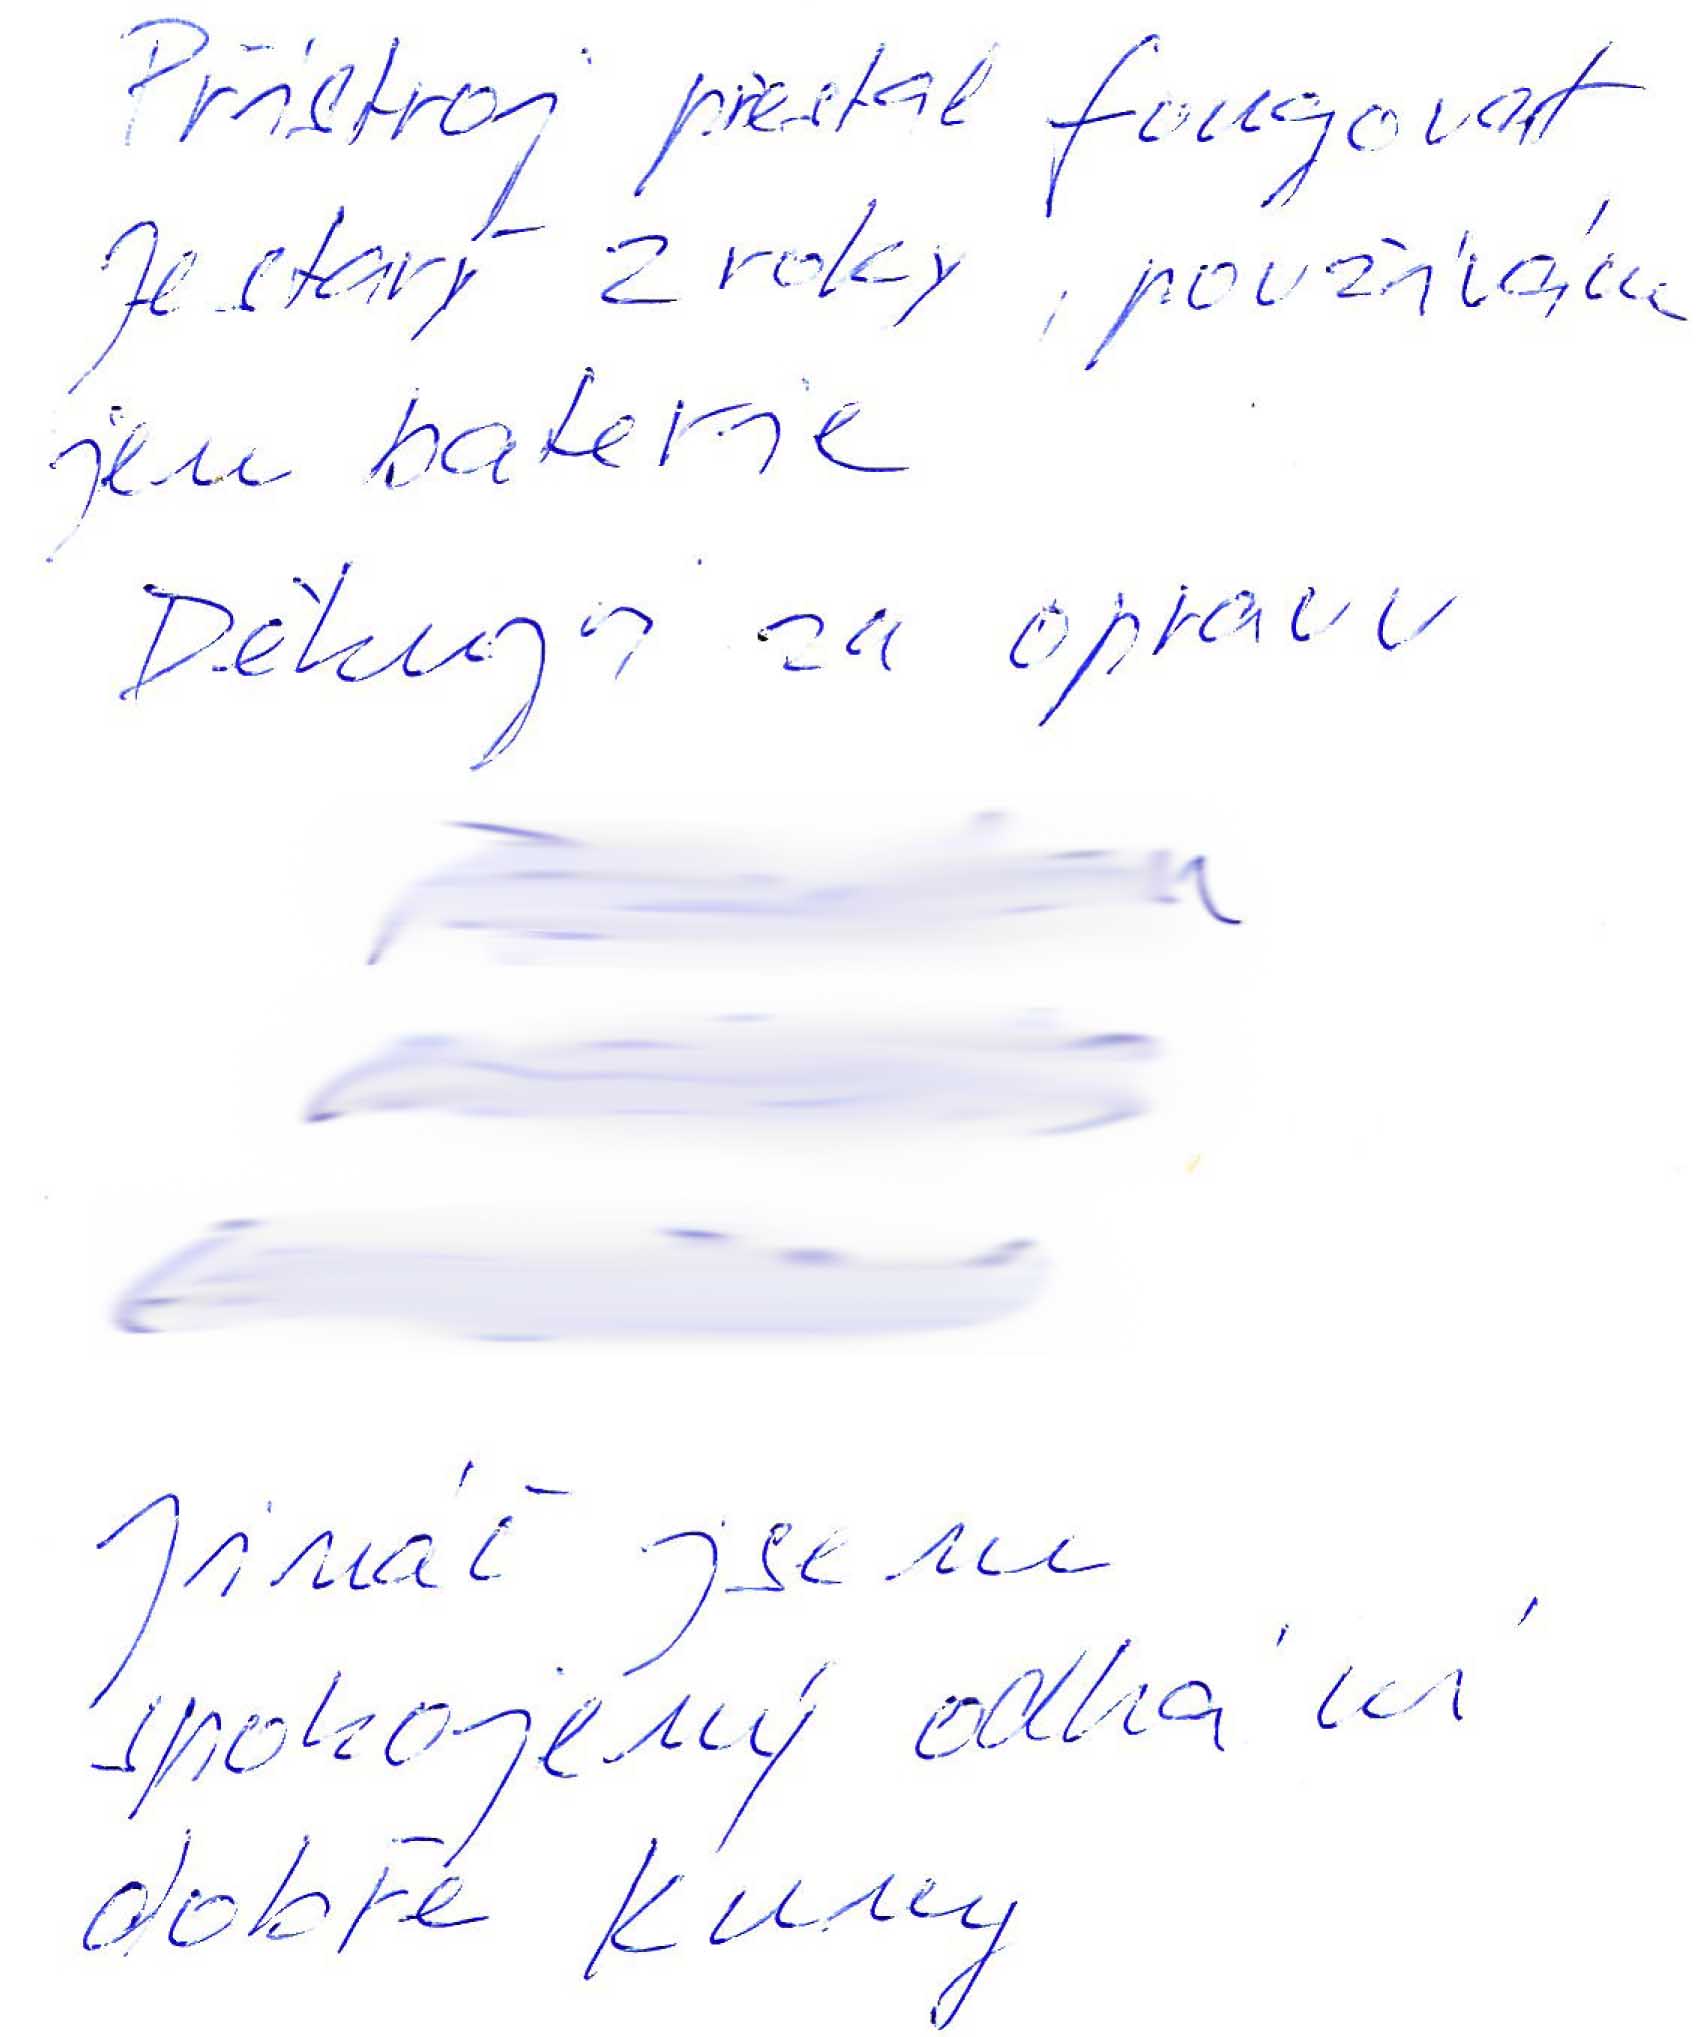 Přístroj přestal fougovat
Je starý 2 roky, používám
jen baterie
Děkuji za opravu
Jináč jsem
spokojený odhání
dobře kuny